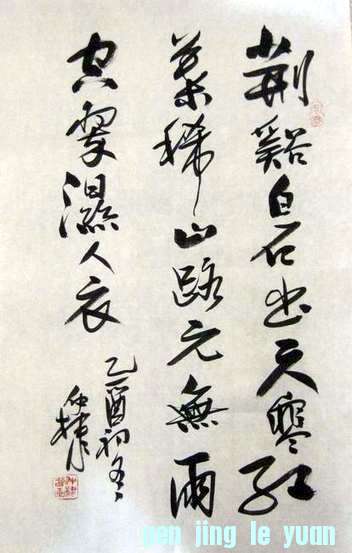 荆谿白石出天寒红
葉稀山路元無雨
空翠濕人衣
乙酉初冬
pen jing le yuan